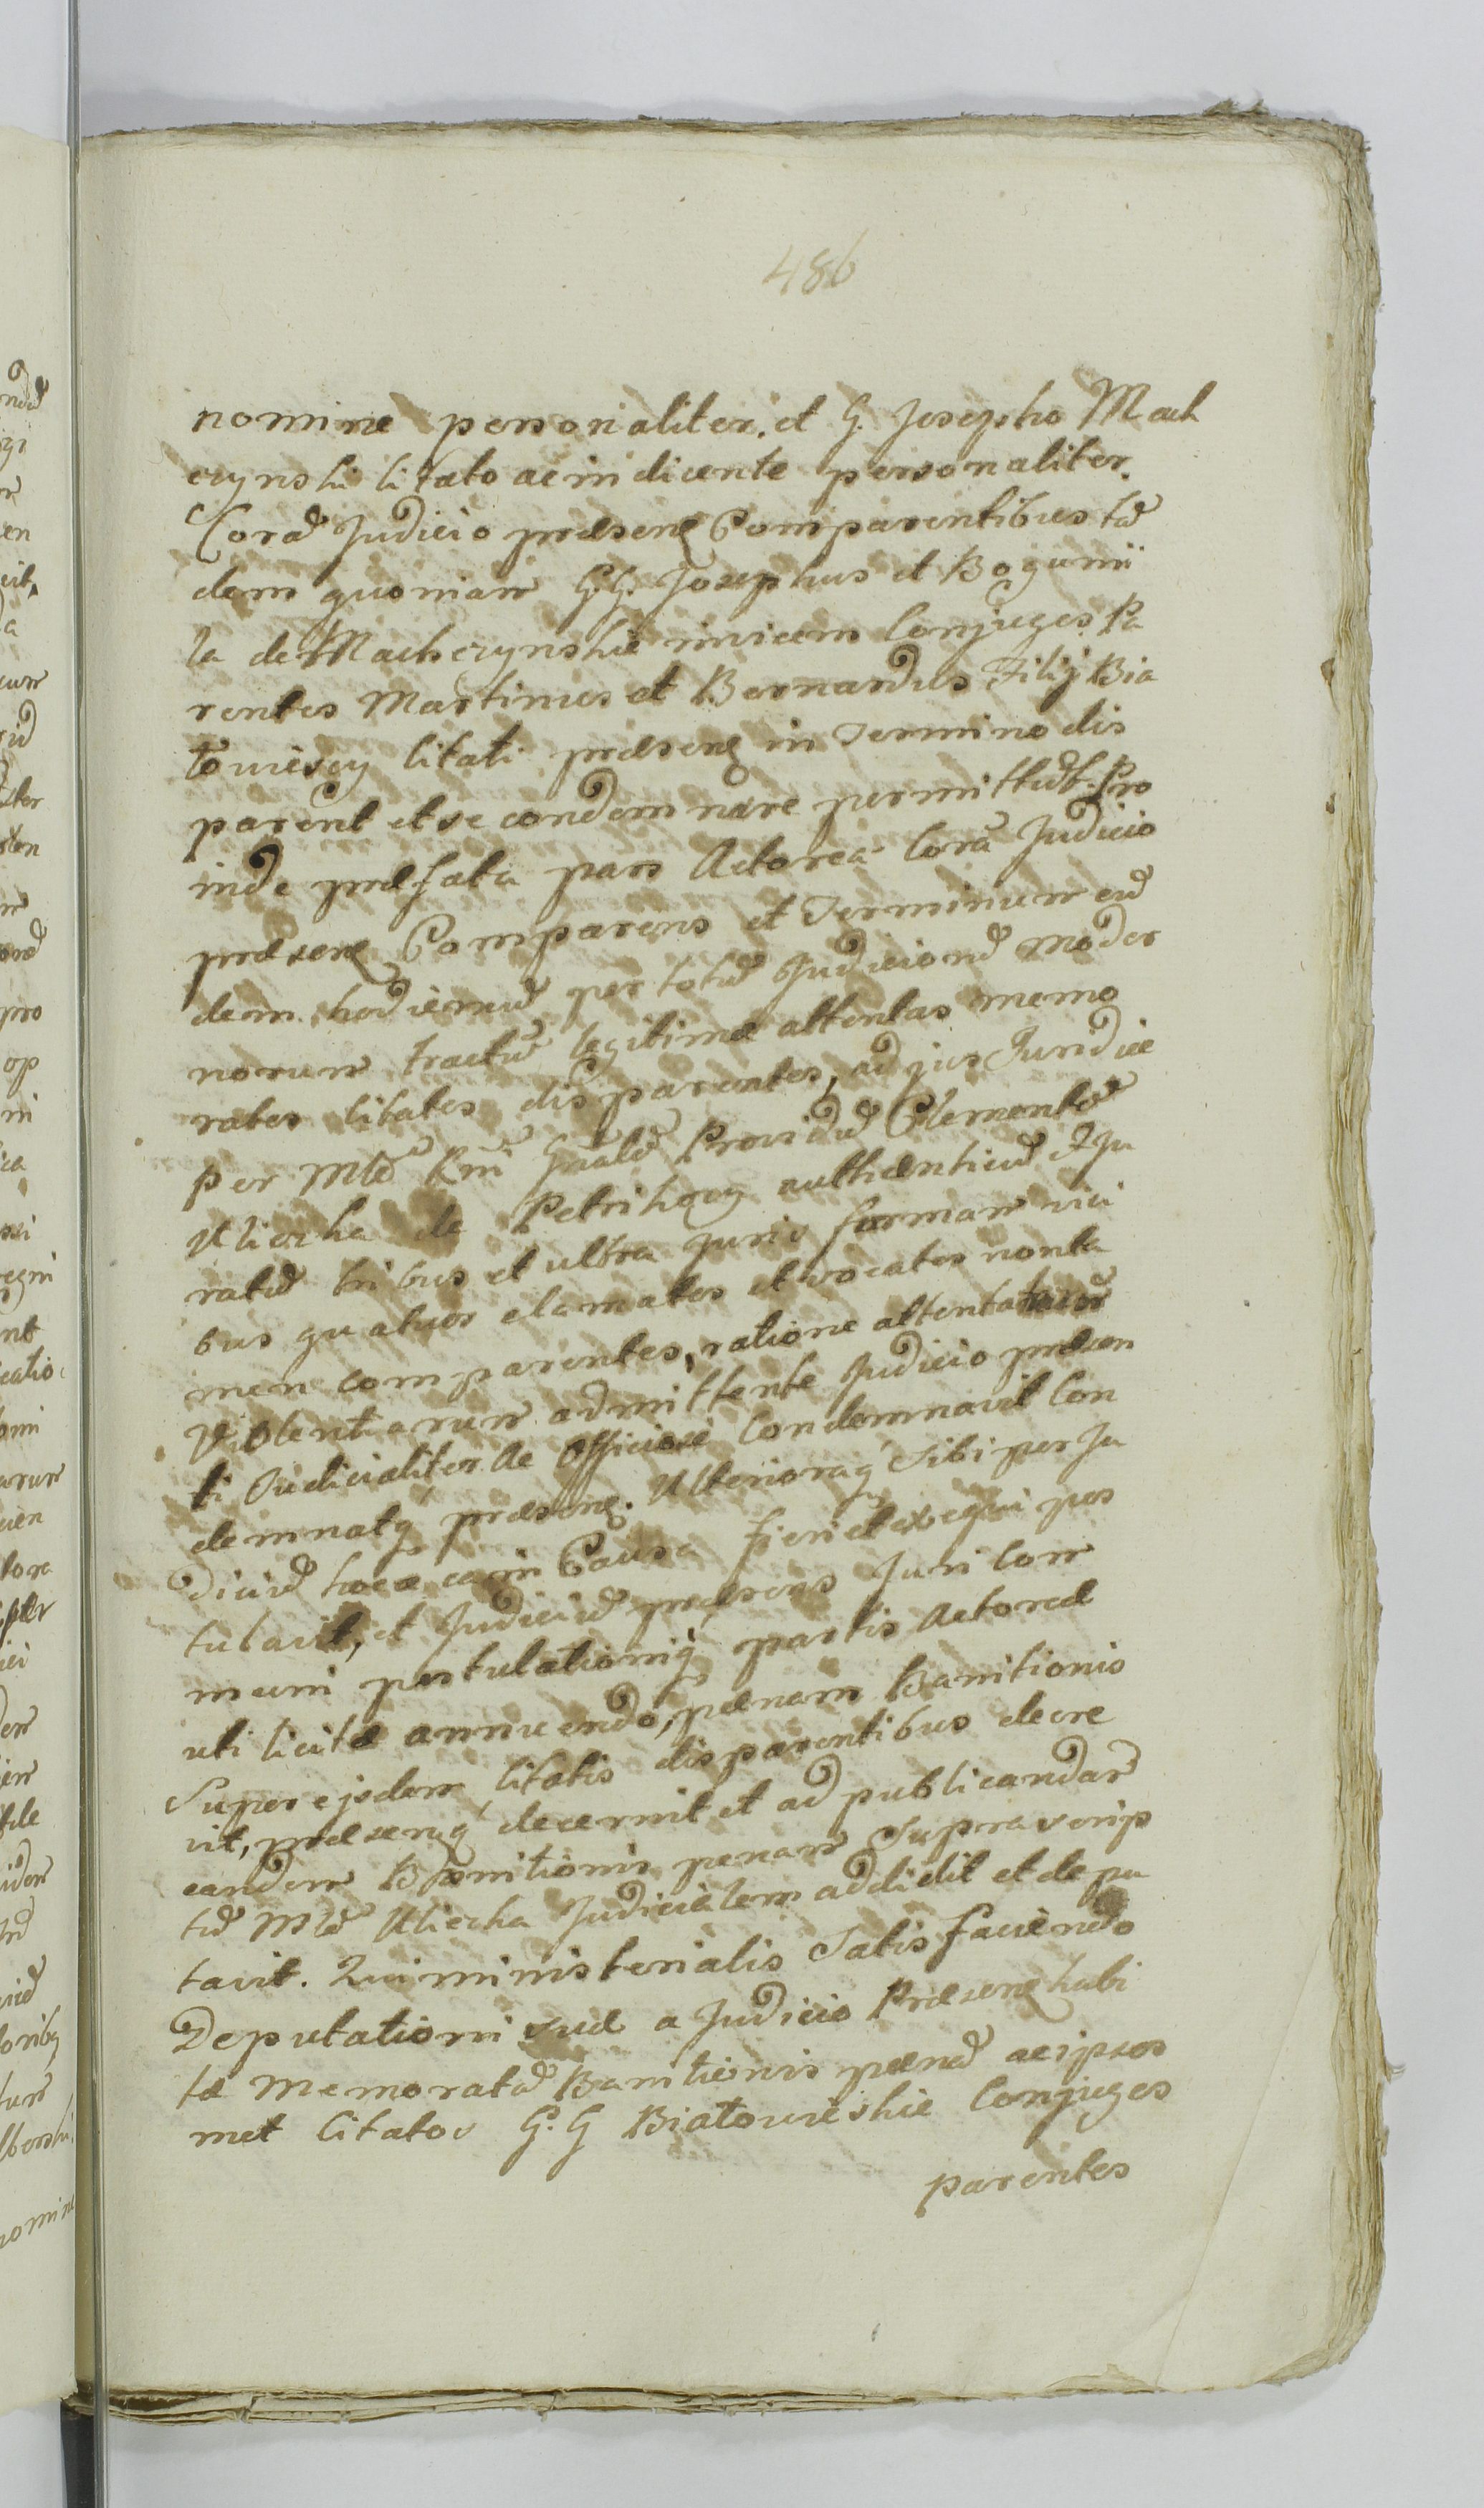 486
nomine personaliter. et G. Josepho Mach
czynski Citato ac indicente personaliter.
Corã Judicio præsenȝ Comparentibus tã
dem quoniam G.G. Josephus et Bogumi
la de Machczynskie invicem Conjuges Pa
rentes Martinus et Bernardus Filij Bia
łowiescy Citati præsenȝ in Termino dis
parent et se condemnare permittũt. Pro
inde præfata pars Actorea Corã Judicio
præsenȝ Comparens et Terminum eũ
dem hodiernũ per totũ Judiciorũ moder
norum tractũ legitime attentas memo
ratos Citatos disparentes, ad jus Juridice
per Mlẽ Rni Gñalẽ Providũ Clementẽ
Uliczka de Petrihozy authenticũ et Ju
ratũ tribus et ultra juris formam vici
bus quatuor clamatos et vocatos non ta
men comparentes, ratione attentatarũ
Violentiarum admittente Judicio præsen
ti Judicialiter Ac Officiose Condemnavit Con
demnatq præsenȝ. Ulterioraq Sibi per Ju
diciũ hocce ea in Causa fieri et exequi pos
tulavit, et Judiciũ præsens Juri Com
muni postulationiq partis Actoreæ
uti licitæ annuendo, pænam Banitionis
Super ejsdem Citatis disparentibus decre
vit, præsenȝq decernit et ad publicandam
eandem Banitionis pænam Suprascrip
tũ Mlẽ Uliczka Judicialem addidit et depu
tavit. Qui ministerialis Satisfaciendo
Deputationi suæ a Judicio Præsenȝ habi
tæ Memoratã Banitionis pænã ac ipsos
met Citatos G.G Białowieskie Conjuges
parentes